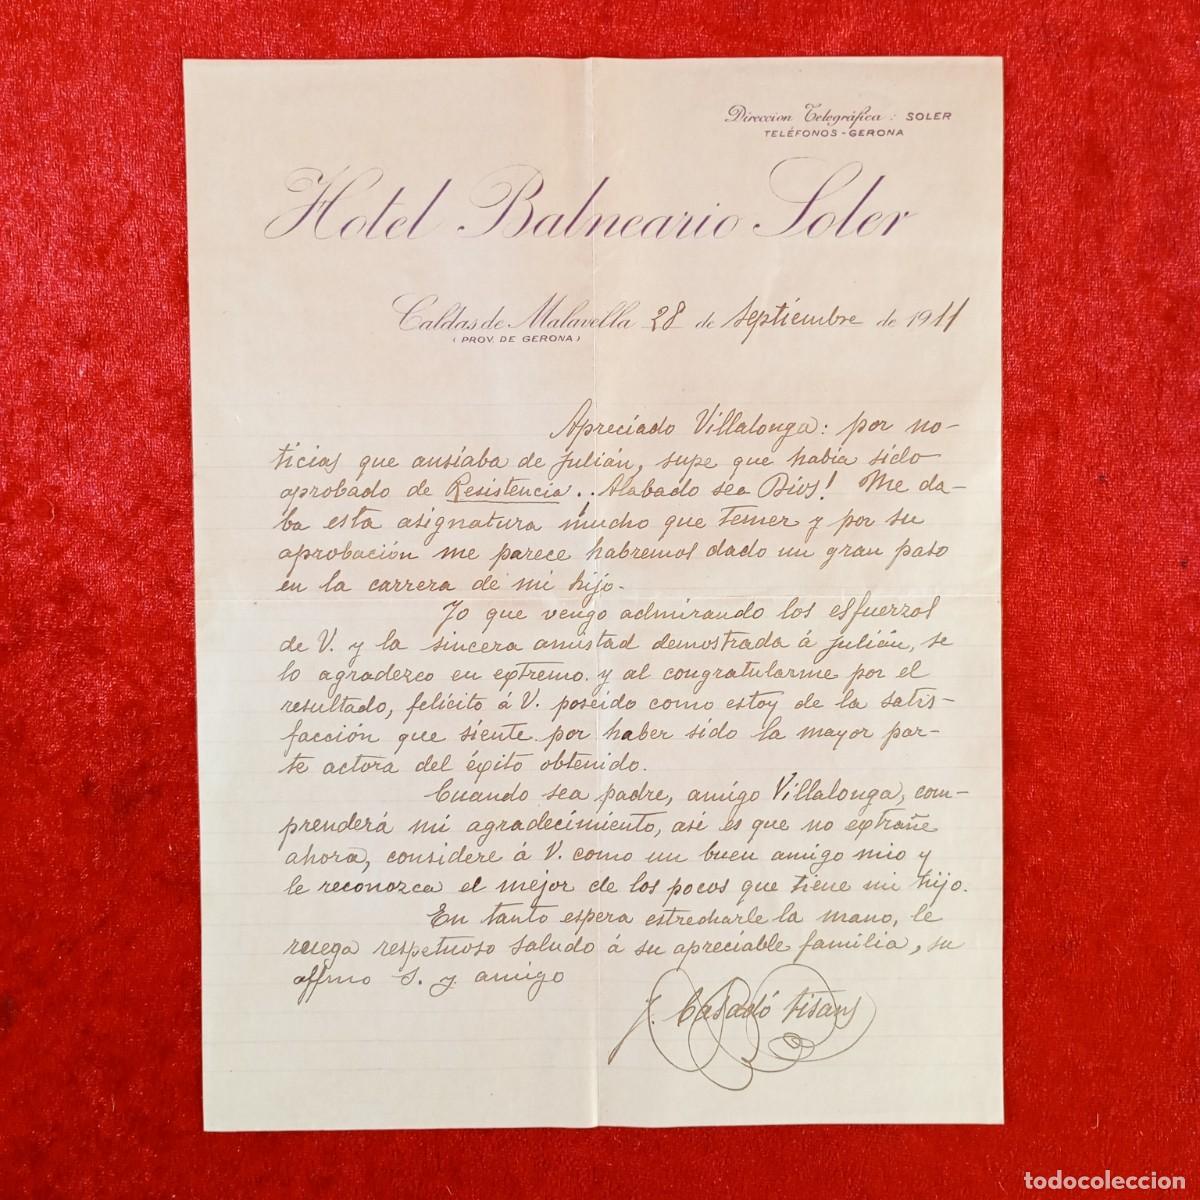 Direccion Telegráfica: SOLER
TELÉFONOS - GERONA
Hotel Balneario Soler
Caldas de Malavella 28 de Septiembre de 1911
(PROV. DE GERONA)
Apreciado Villalonga: por no-
ticias que ansiaba de Julián, supe que había sido
aprobado de Resistencia.. Alabado sea Dios! Me da-
ba esta asignatura mucho que temer y por su
aprobación me parece habremos dado un gran paso
en la carrera de mi hijo.
Yo que vengo admirando los esfuerzos
de V. y la sincera amistad demostrada á Julián, se
lo agradezco en extremo y al congratularme por el
resultado, felicito á V. poseido como estoy de la satis-
facción que siente por haber sido la mayor par-
te actora del éxito obtenido.
Cuando sea padre, amigo Villalonga, com-
prenderá mi agradecimiento, asi es que no extrañe
ahora, considere á V. como un buen amigo mio y
le reconozca el mejor de los pocos que tiene mi hijo.
En tanto espera estrecharle la mano, le
ruega respetuoso saludo á su apreciable familia, su
affmo S. y amigo
J. Casadó
todocoleccion